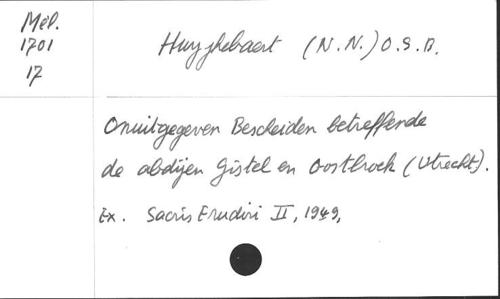 Mél.
1701
17
Huyghebaert (N.N.) O.S.B.
Onuitgegeven Bescheiden betreffende
de abdijen Gistel en Oostbroek (Utrecht).
Ex. Sacris Erudiri II, 1949,